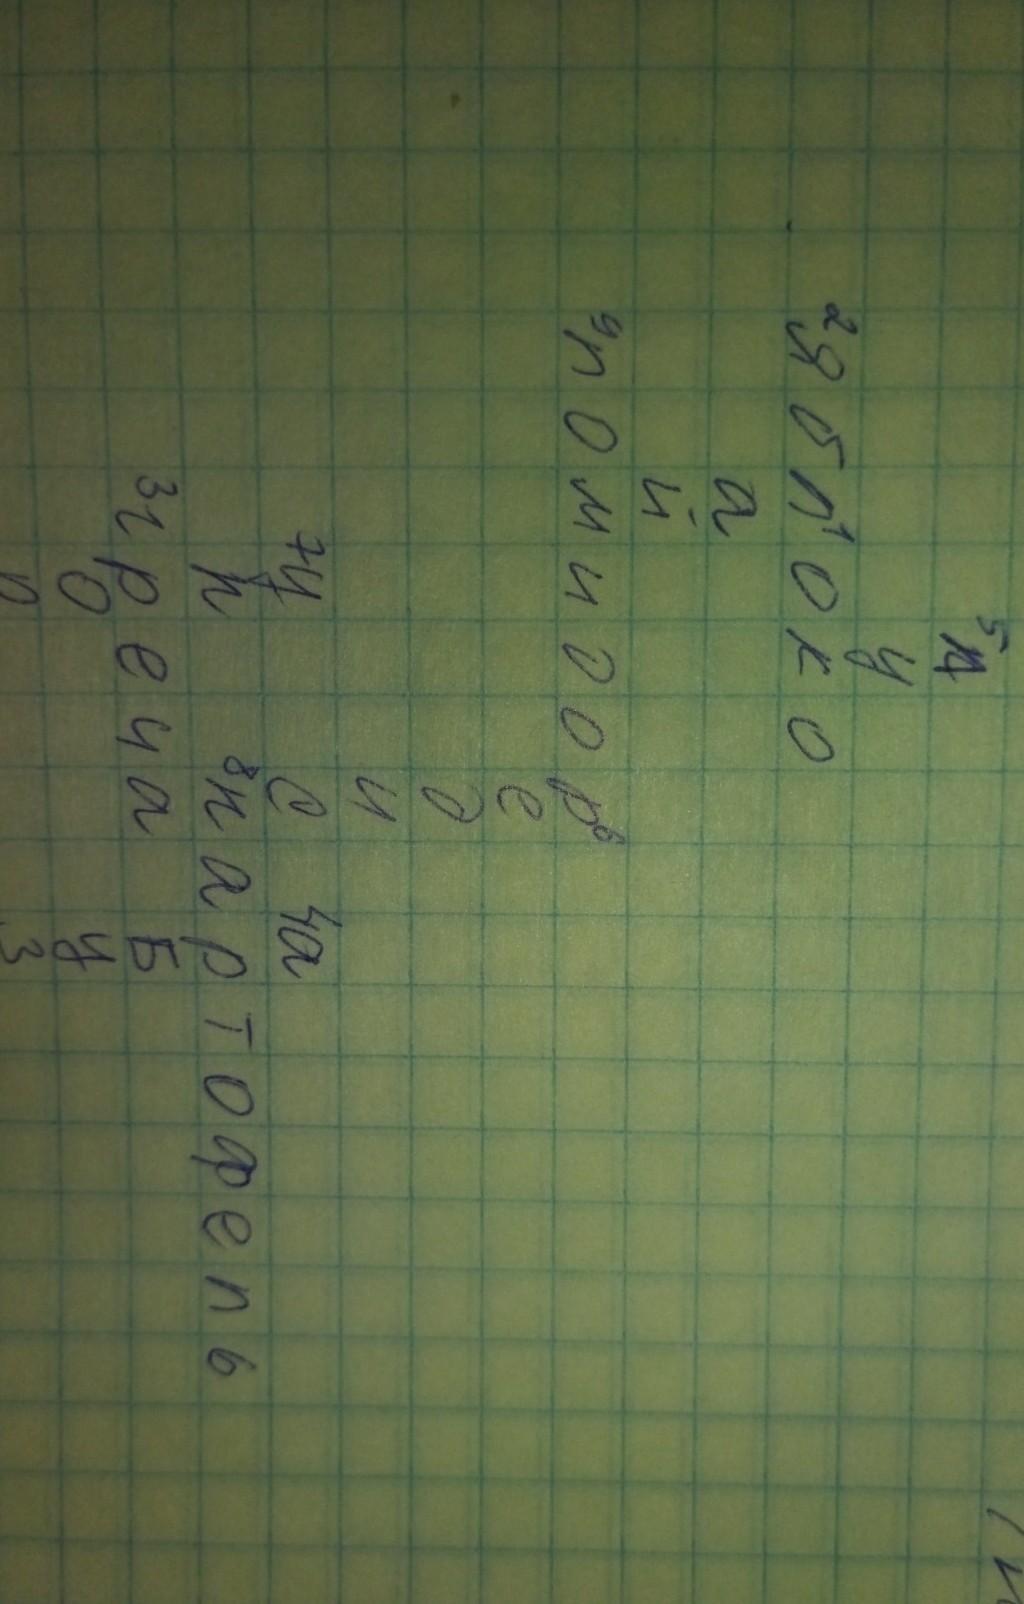 5л
у
2яблл1око
а
й
9помидор6
е
д
и
7у с 4а
к 8картофель
3греча Б
о у
п з